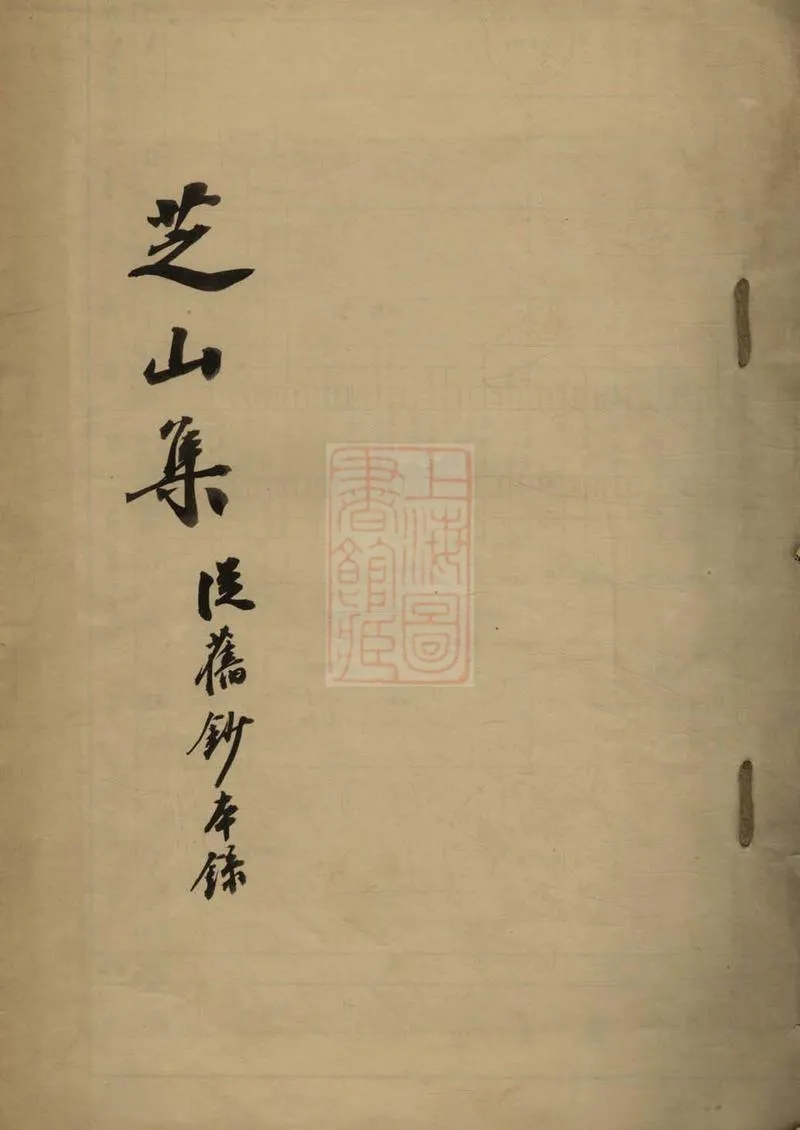 芝山集
从舊鈔本錄
上海圖
書館藏